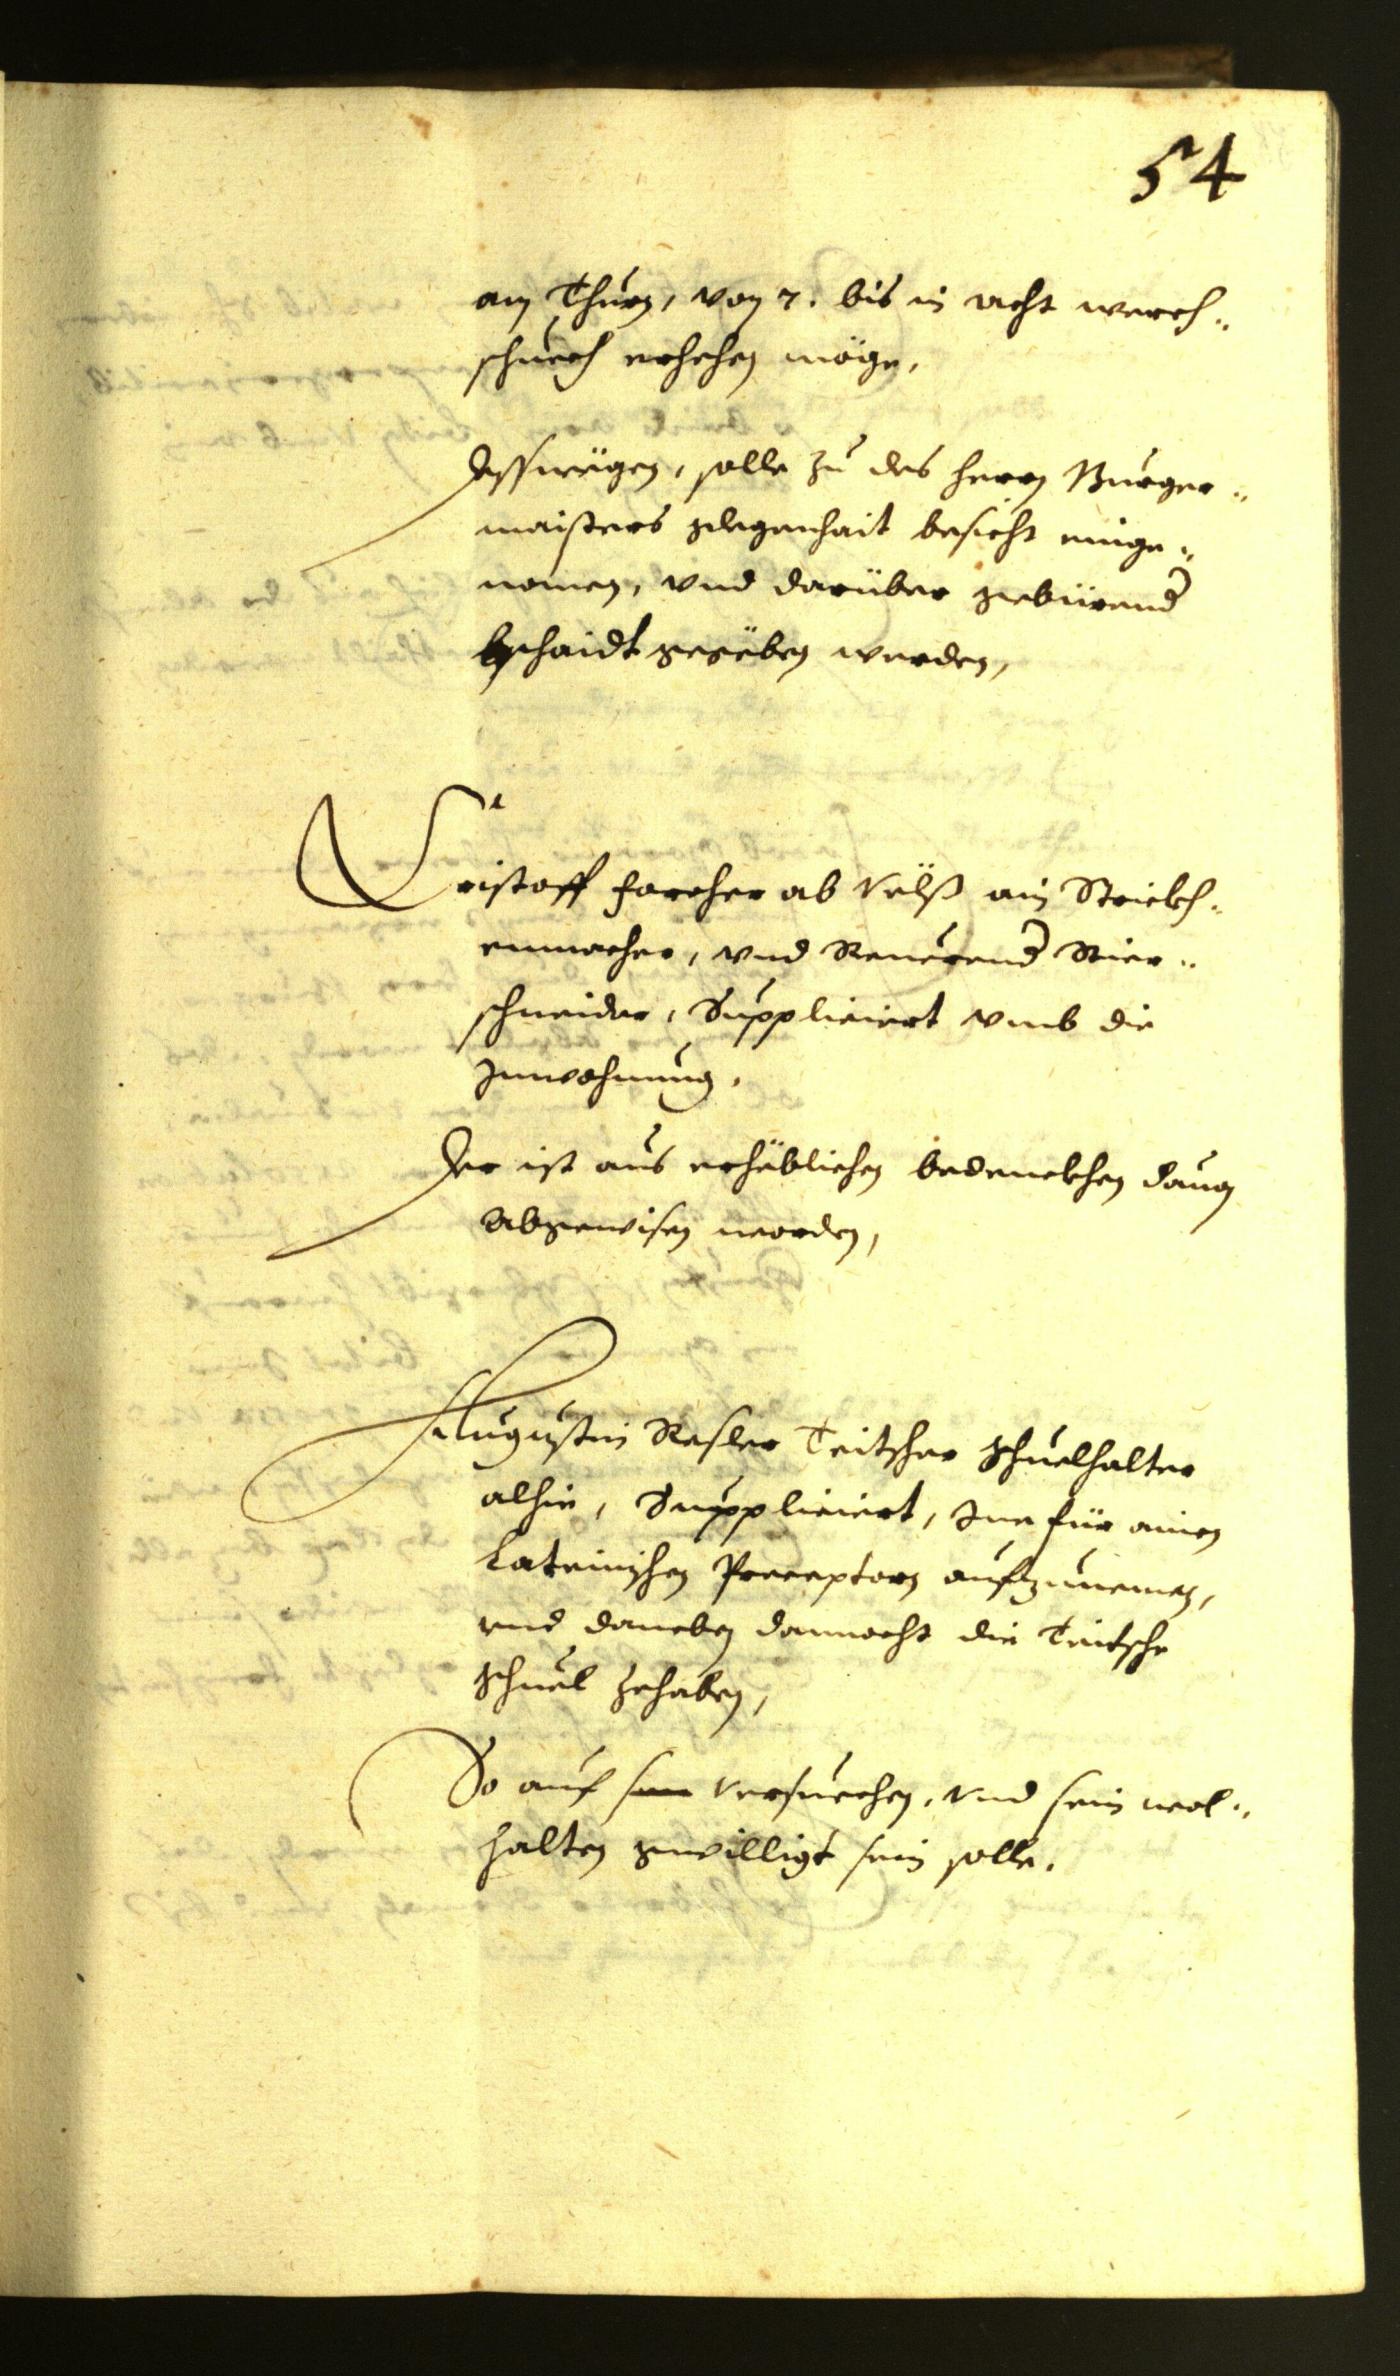 54
am Thurn, von 7. bis in acht werch„
schuech erhehen möge,
Desswegen, solle zu des herrn Burger„
maisters glegenhait besicht einge„
nomen, vnd darüber gebürend
bschaidt gegeben werden,
Cristoff Forcher ab Velß ain Strickh„
enmacher, vnd Reuerend Stier„
schneider, Suppliciert vmb die
Inwohnung,
Der ist aus erheblichen bedenckhen dauon
Abgewisen worden,
Augustin Resler Teitscher Schuelhalter
alhie, Suppliciert, Ine für ainen
Lateinischen Preceptorn aufzunemen,
vnd daneben dannocht die Teitsche
Schuel zehaben,
So auf sein versuechen, vnd sein wol„
halten gwilligt sein solle.